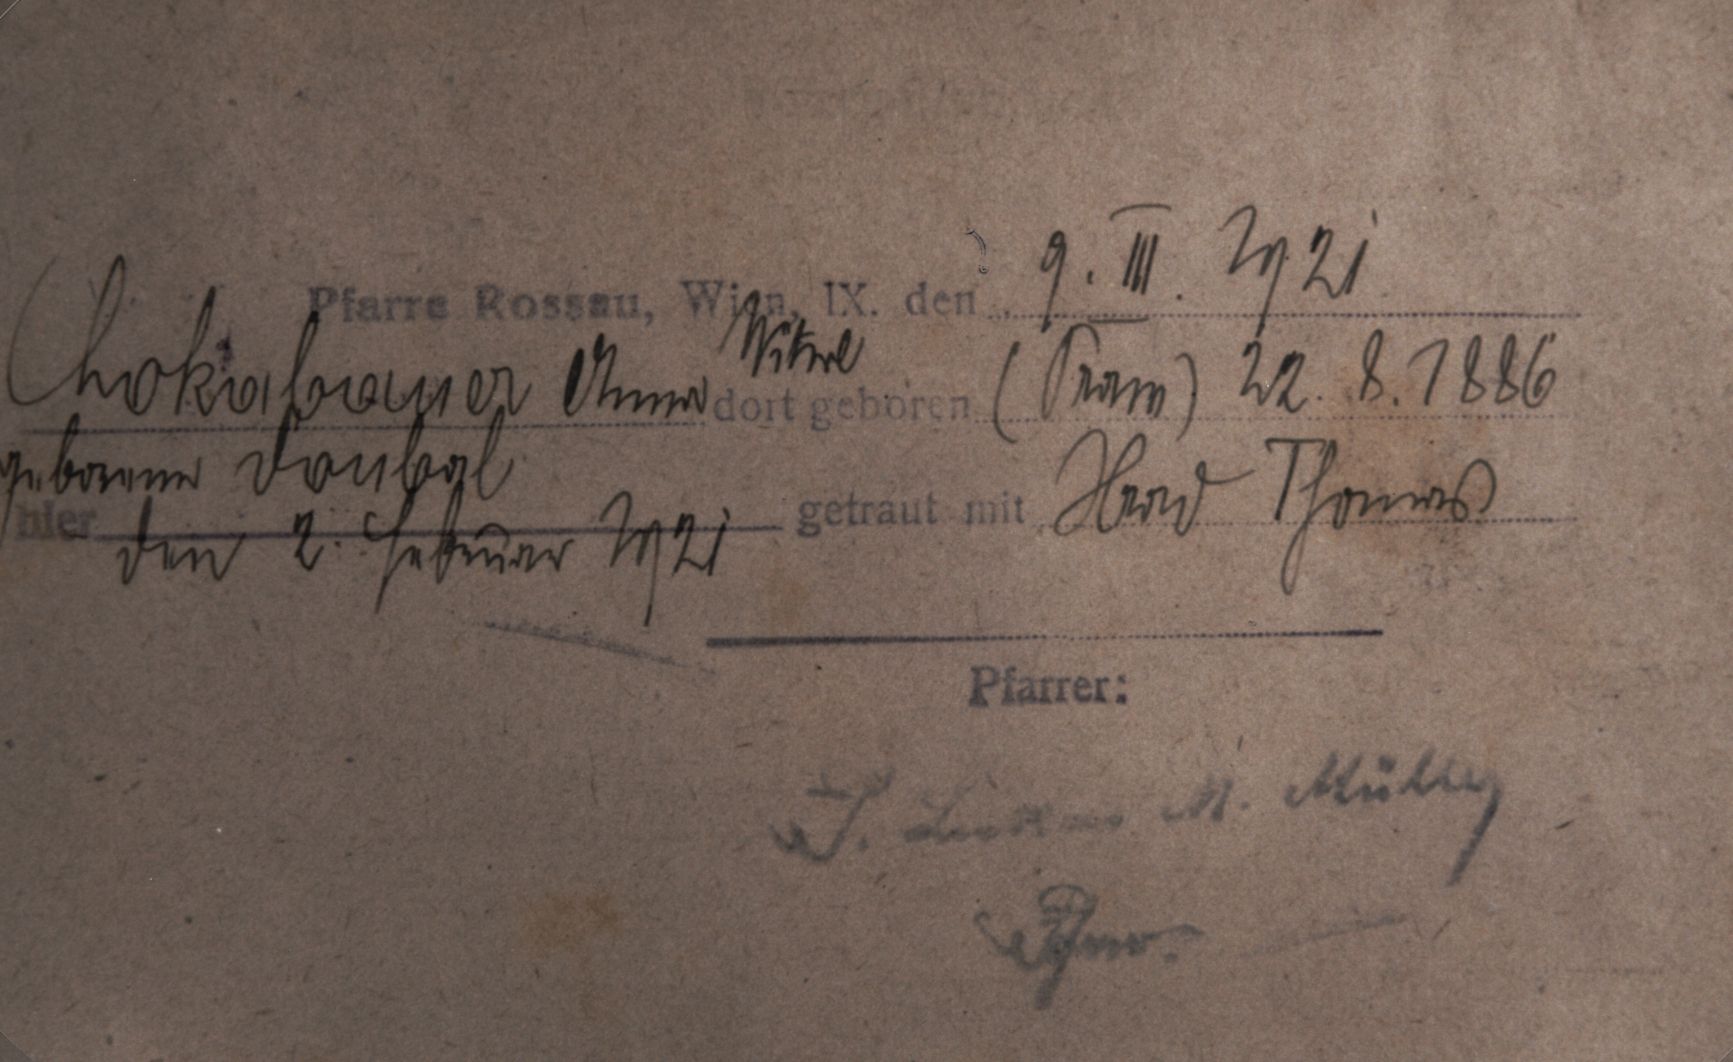 Pfarre Rossau, Wien, IX. den 9. III. 1921
Witwe
Chokabauer Anna dort geboren (Pram) 22. 8. 1886
geborene Doubal
hier getraut mit Thomas
den 2. Februar 1921
Pfarrer:
P. M. Müller